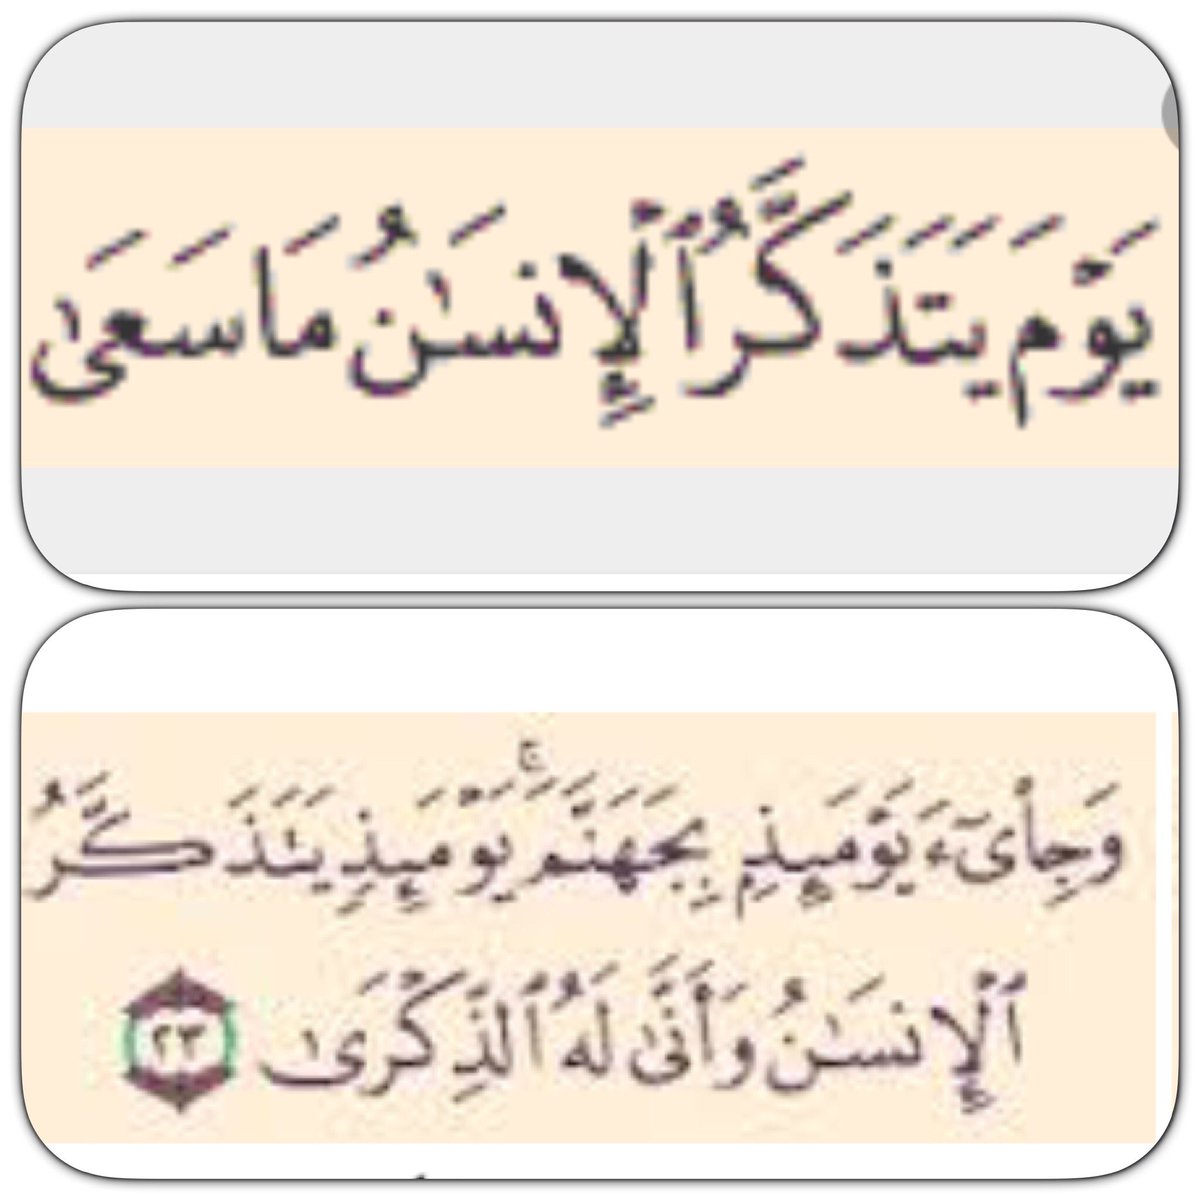 يَوْمَ يَتَذَكَّرُ ٱلْإِنسَٰنُ مَا سَعَىٰ
وَجِا۟ىٓءَ يَوْمَئِذٍۭ بِجَهَنَّمَ ۚ يَوْمَئِذٍ يَتَذَكَّرُ
ٱلْإِنسَٰنُ وَأَنَّىٰ لَهُ ٱلذِّكْرَىٰ ٢٣